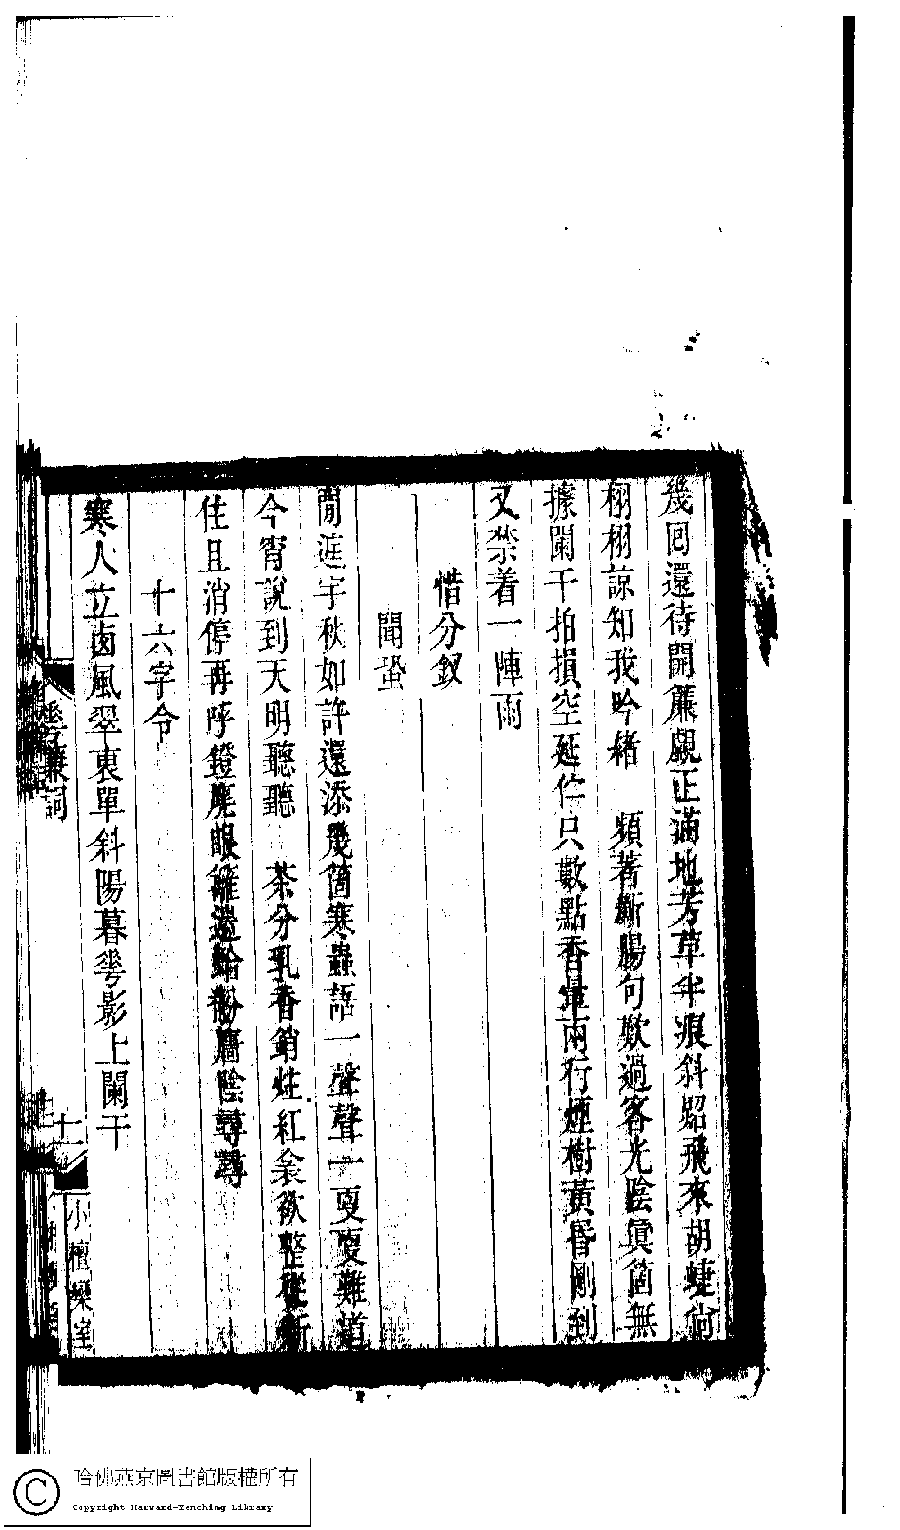 幾回還待開簾覷正滿地芳草半痕斜照飛來胡蜨尙
栩栩諒知我吟緒　頻著斷腸句歎過客光陰眞箇無
據闌干拍損空延伫只數點香暈兩行煙樹黃昏剛到
又禁着一陣雨
惜分釵
聞蛩
閒庭宇秋如許還添幾箇寒蟲語一聲聲一更更難道
今宵說到天明聽聽　茶分乳香銷炷紅衾欲整從新
住且消停再呼鐙麂眼籬邊蛤粉牆陰尋尋
十六字令
寒人立鹵風翠裏單斜陽暮花影上闌干
簾詞
十一
小檀欒室
哈佛燕京圖書館版權所有
Copyright Harvard-Yenching Library